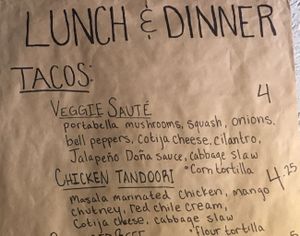 LUNCH & DINNER
TACOS:
VEGGIE SAUTÉ 4
portabella mushrooms, squash, onions,
bell peppers, Cotija cheese, cilantro,
Jalapeño Doña sauce, cabbage slaw
*Corn tortilla
CHICKEN TANDOORI 4.25
Masala marinated chicken, mango
chutney, red chile cream,
Cotija cheese, cabbage slaw
*flour tortilla